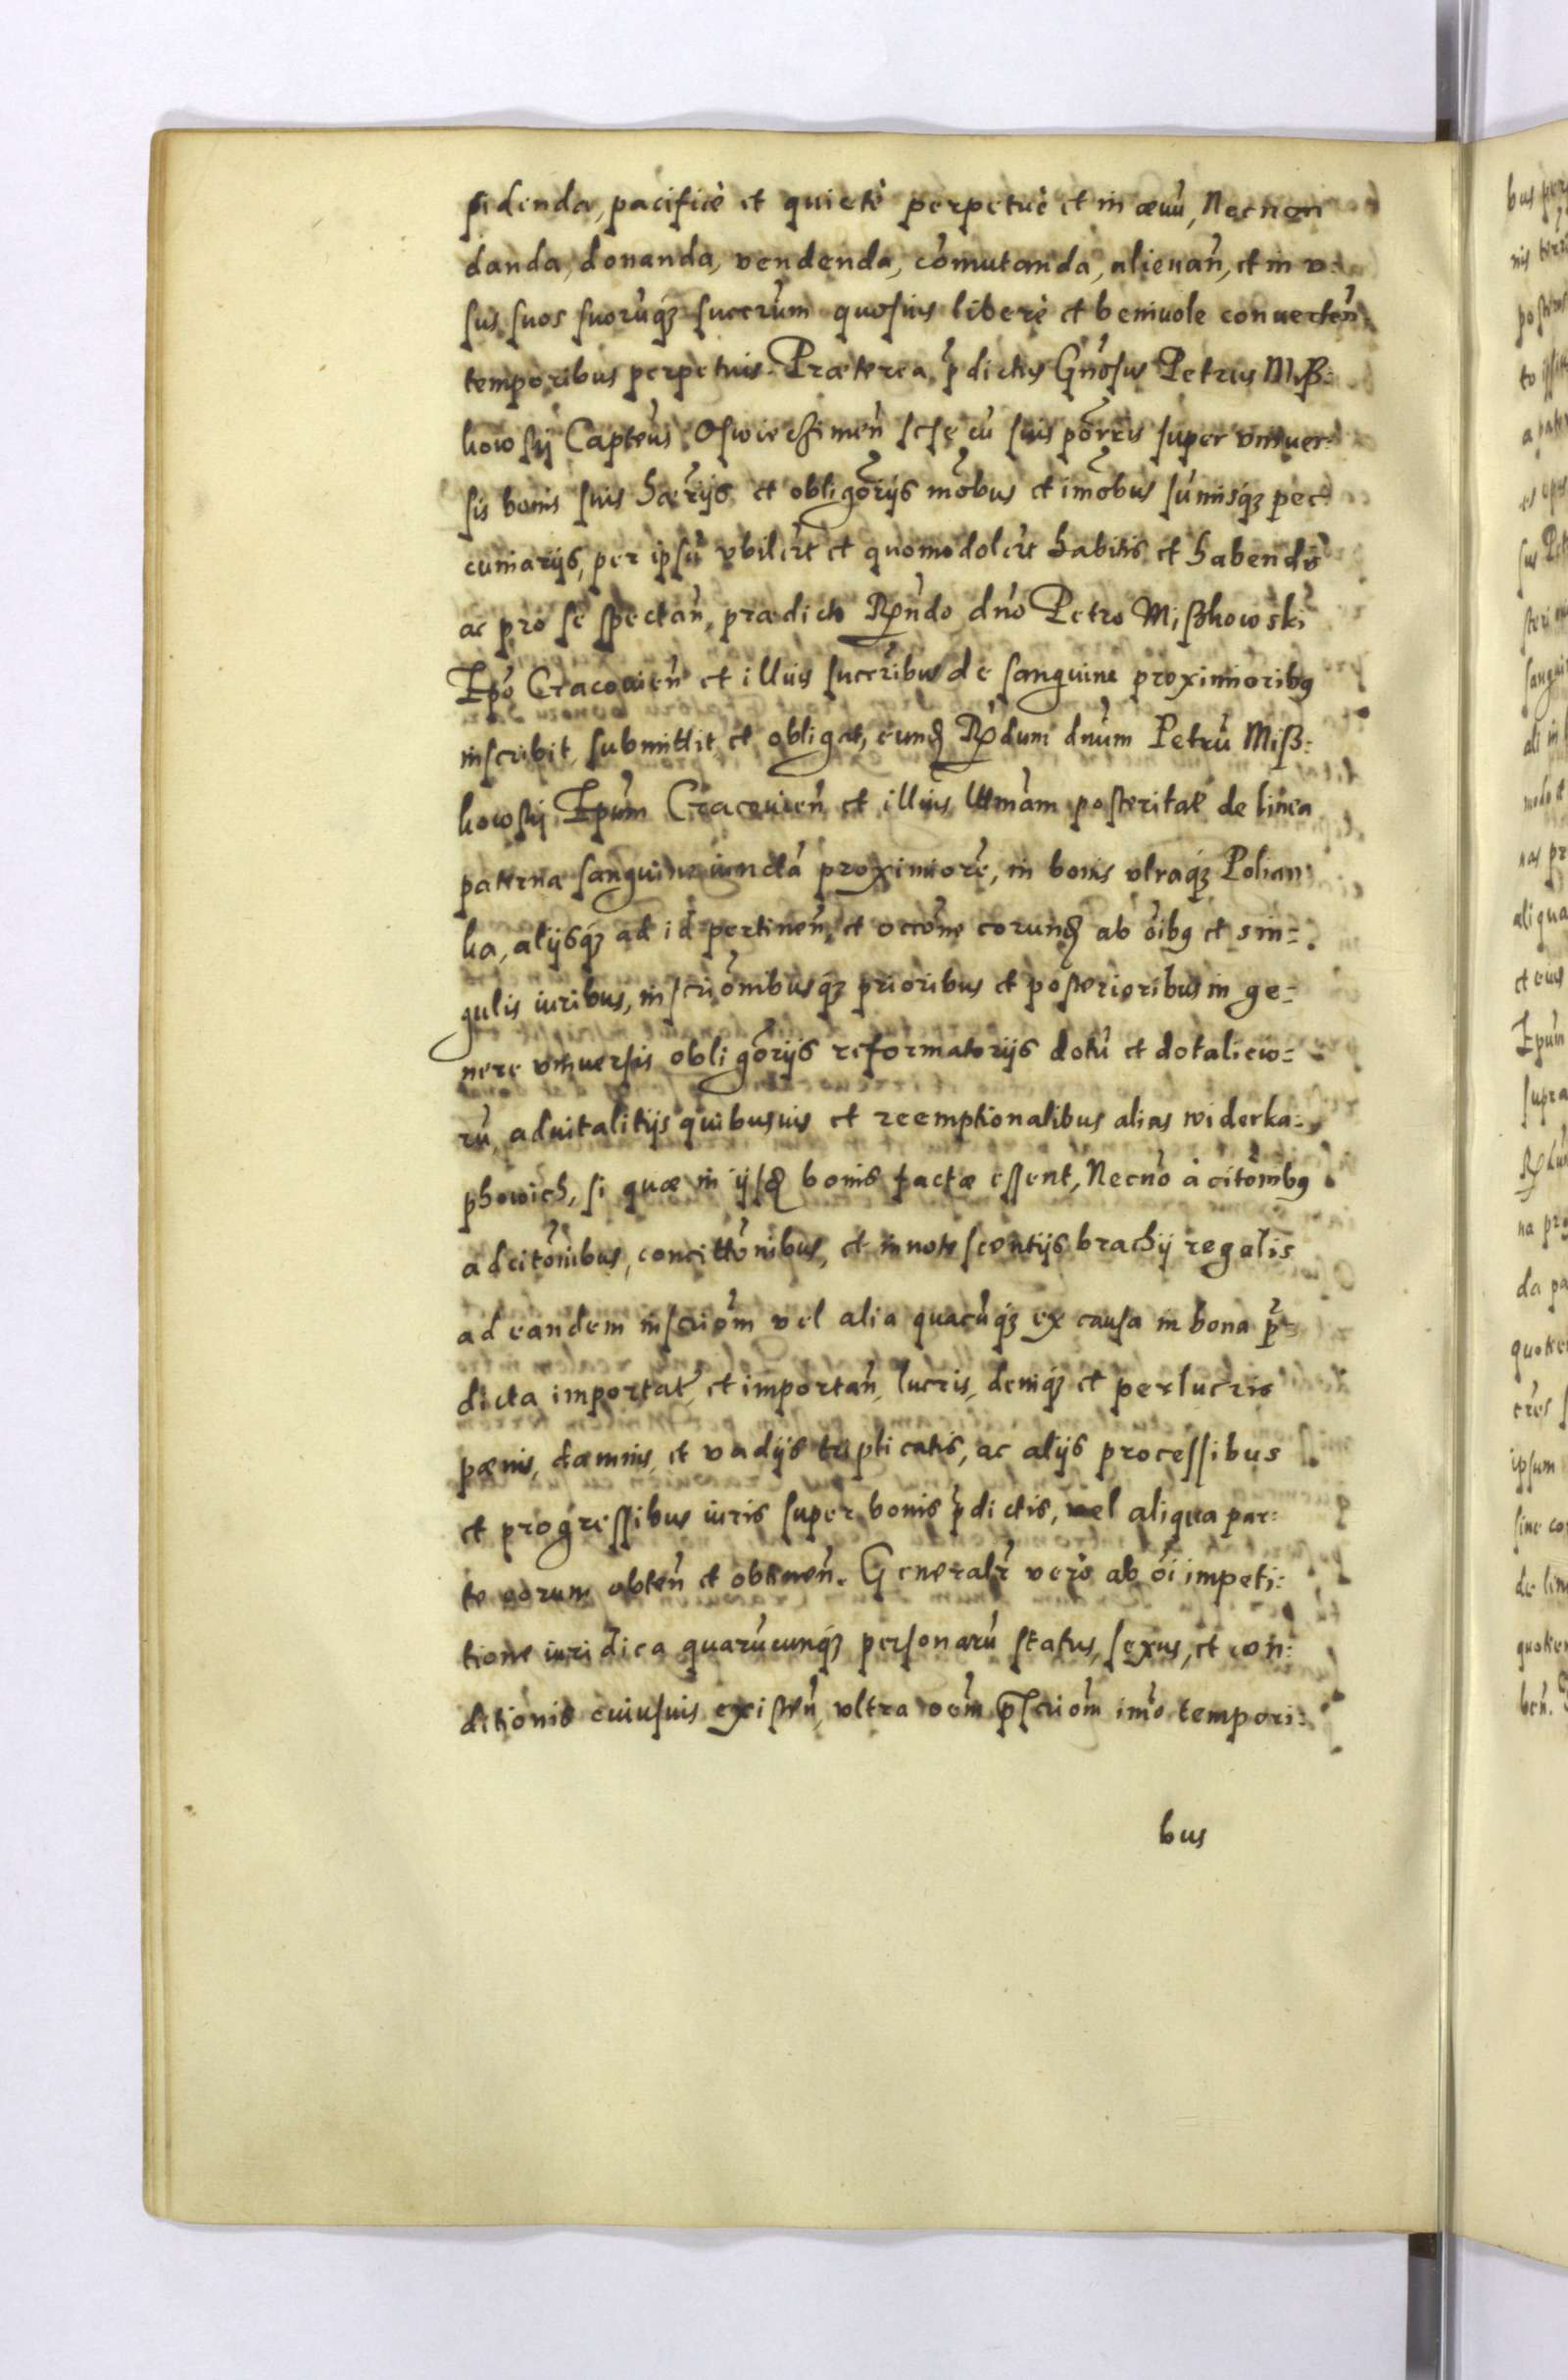 sidenda, pacificè et quietè perpetuè et in æuū, Necnon
danda, donanda, vendenda, cōmutanda, alienañ, et in v=
sus suos suorūq́ꝫ succr̃um quosuis liberè et beniuole conuerteñ
temporibus perpetuis. Præterea p̃dictus Gñosus Petrus Miß=
kowskij Capteũs Oswieczimeñ sese cū suis põrris super vniuer=
sis bonis suis hær̃ijs et obligõrijs mõbus et im̃obus sum̃isq́ꝫ pec=
cuniarijs, per ipsū vbilr̃t et quomodolr̃t habitis et habendis
ac pro se spectañ, prædicto Rṽndo dño Petro Mißkowski
Ep̃o Cracouieñ et illius succr̃ibus de sanguine proximioribꝯ
inscribit, submittit et obligat, eundꝫ Rṽdum dñum Petrū Miß=
kowskij Ep̃um Cracouieñ et illius vltim̃am posteritat̃ de linea
paterna sanguine iunctā proximiorē, in bonis vtraq́ꝫ Polian
ka, alijsq́ꝫ ad id pertineñ, et occõne eorundꝫ ab õibꝯ et sin=
gulis iuribus, inscriõnibusq́ꝫ prioribus et posterioribus in ge=
nere vniuersis obligõrijs reformatorijs dotū et dotalicio=
rū, aduitalitijs quibusuis et reemptionalibus alias widerka=
phowich, si quæ in ijsdꝫ bonis factæ essent, Necnõ à citõnibꝯ
adcitõnibus, concittõnibus, et innotescentijs brachij regalis
ad eandem inscriõm vel alia quacūq́ꝫ ex causa in bona p̃=
dicta importat̃, et importañ, lucris, deniq́ꝫ et perlucris
pænis, damnis, et vadijs triplicatis, ac alijs processibus
et progressibus iuris super bonis p̃dictis, vel aliqua par=
te eorum obteñ et obtineñ. Generalr̃ verò ab õi impeti=
tione iuridica quarūcunq́ꝫ personarū status, sexus, et con=
ditionis cuiusuis existeñ, vltra oẽm p̃scriõm imò tempori=
bus